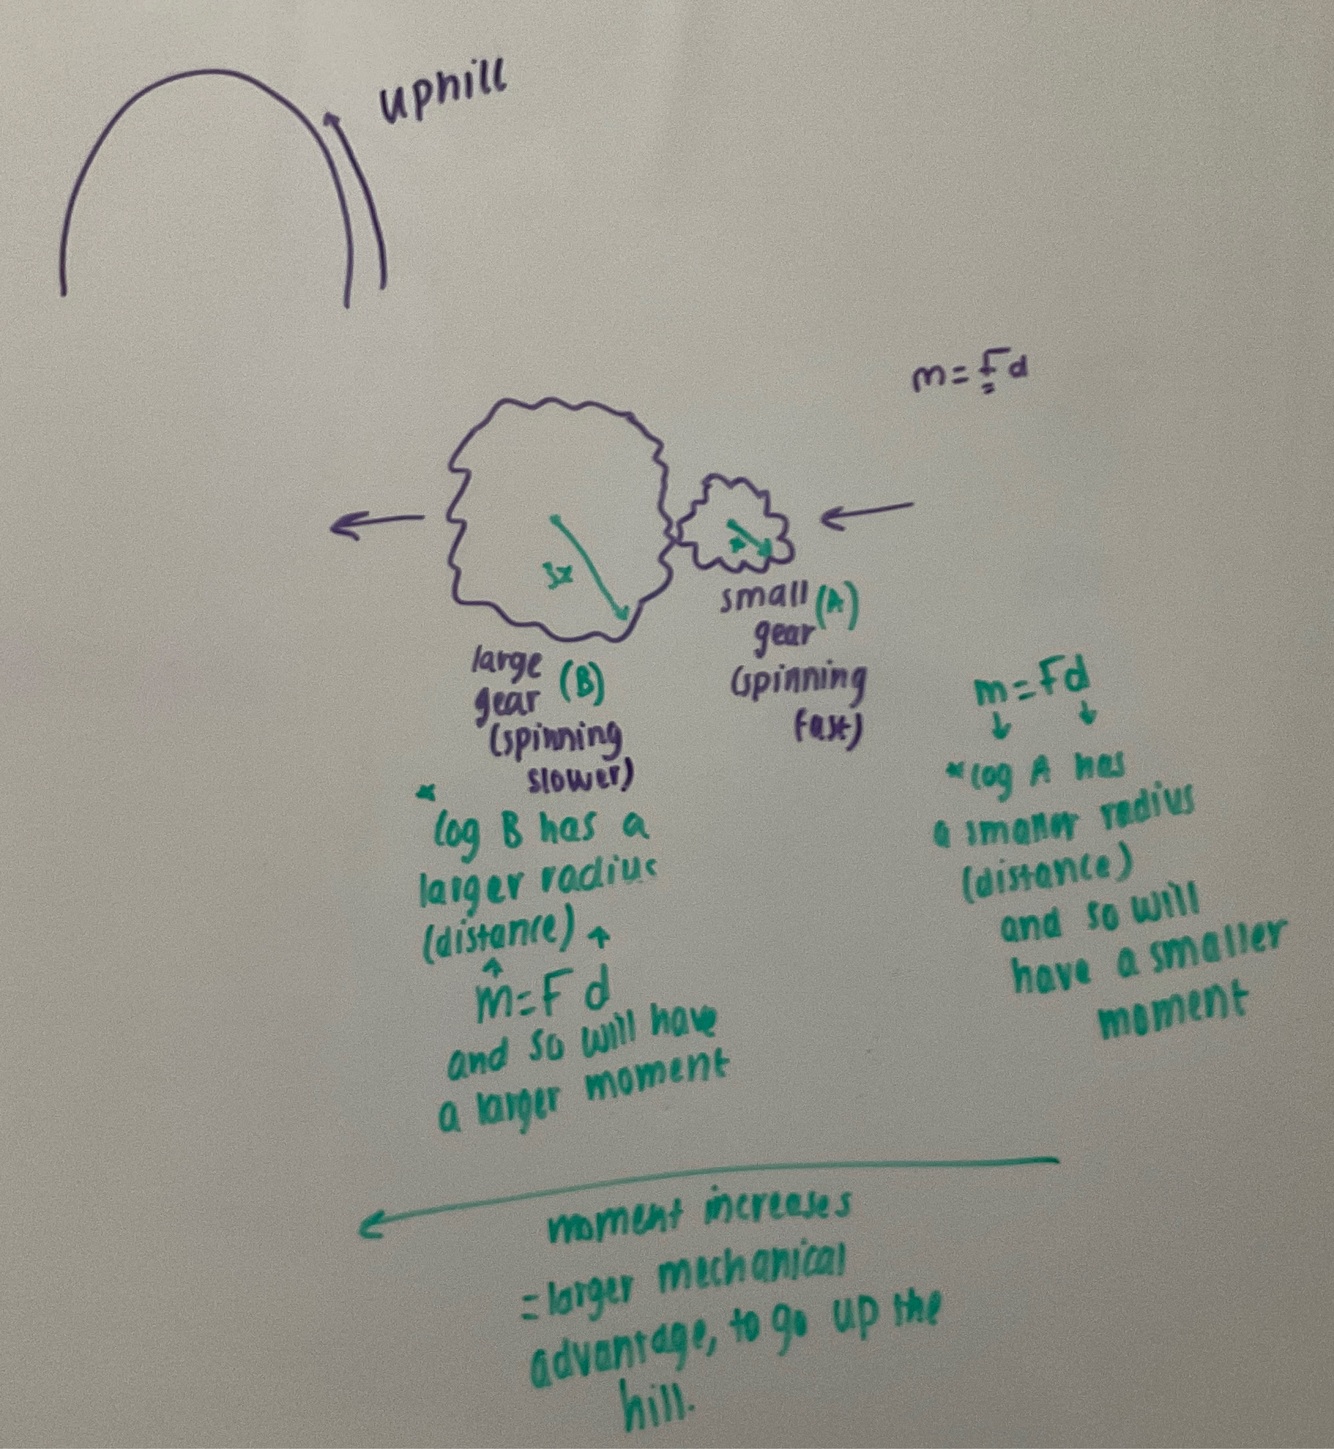 uphill
m = Fd
3x
x
small (A)
gear
(spinning
fast)
large
gear (B)
(spinning
slower)
m = Fd
* cog A has
a smaller radius
(distance)
and so will
have a smaller
moment
*
cog B has a
larger radius
(distance)
m = F d
and so will have
a larger moment
moment increases
= larger mechanical
advantage, to go up the
hill.